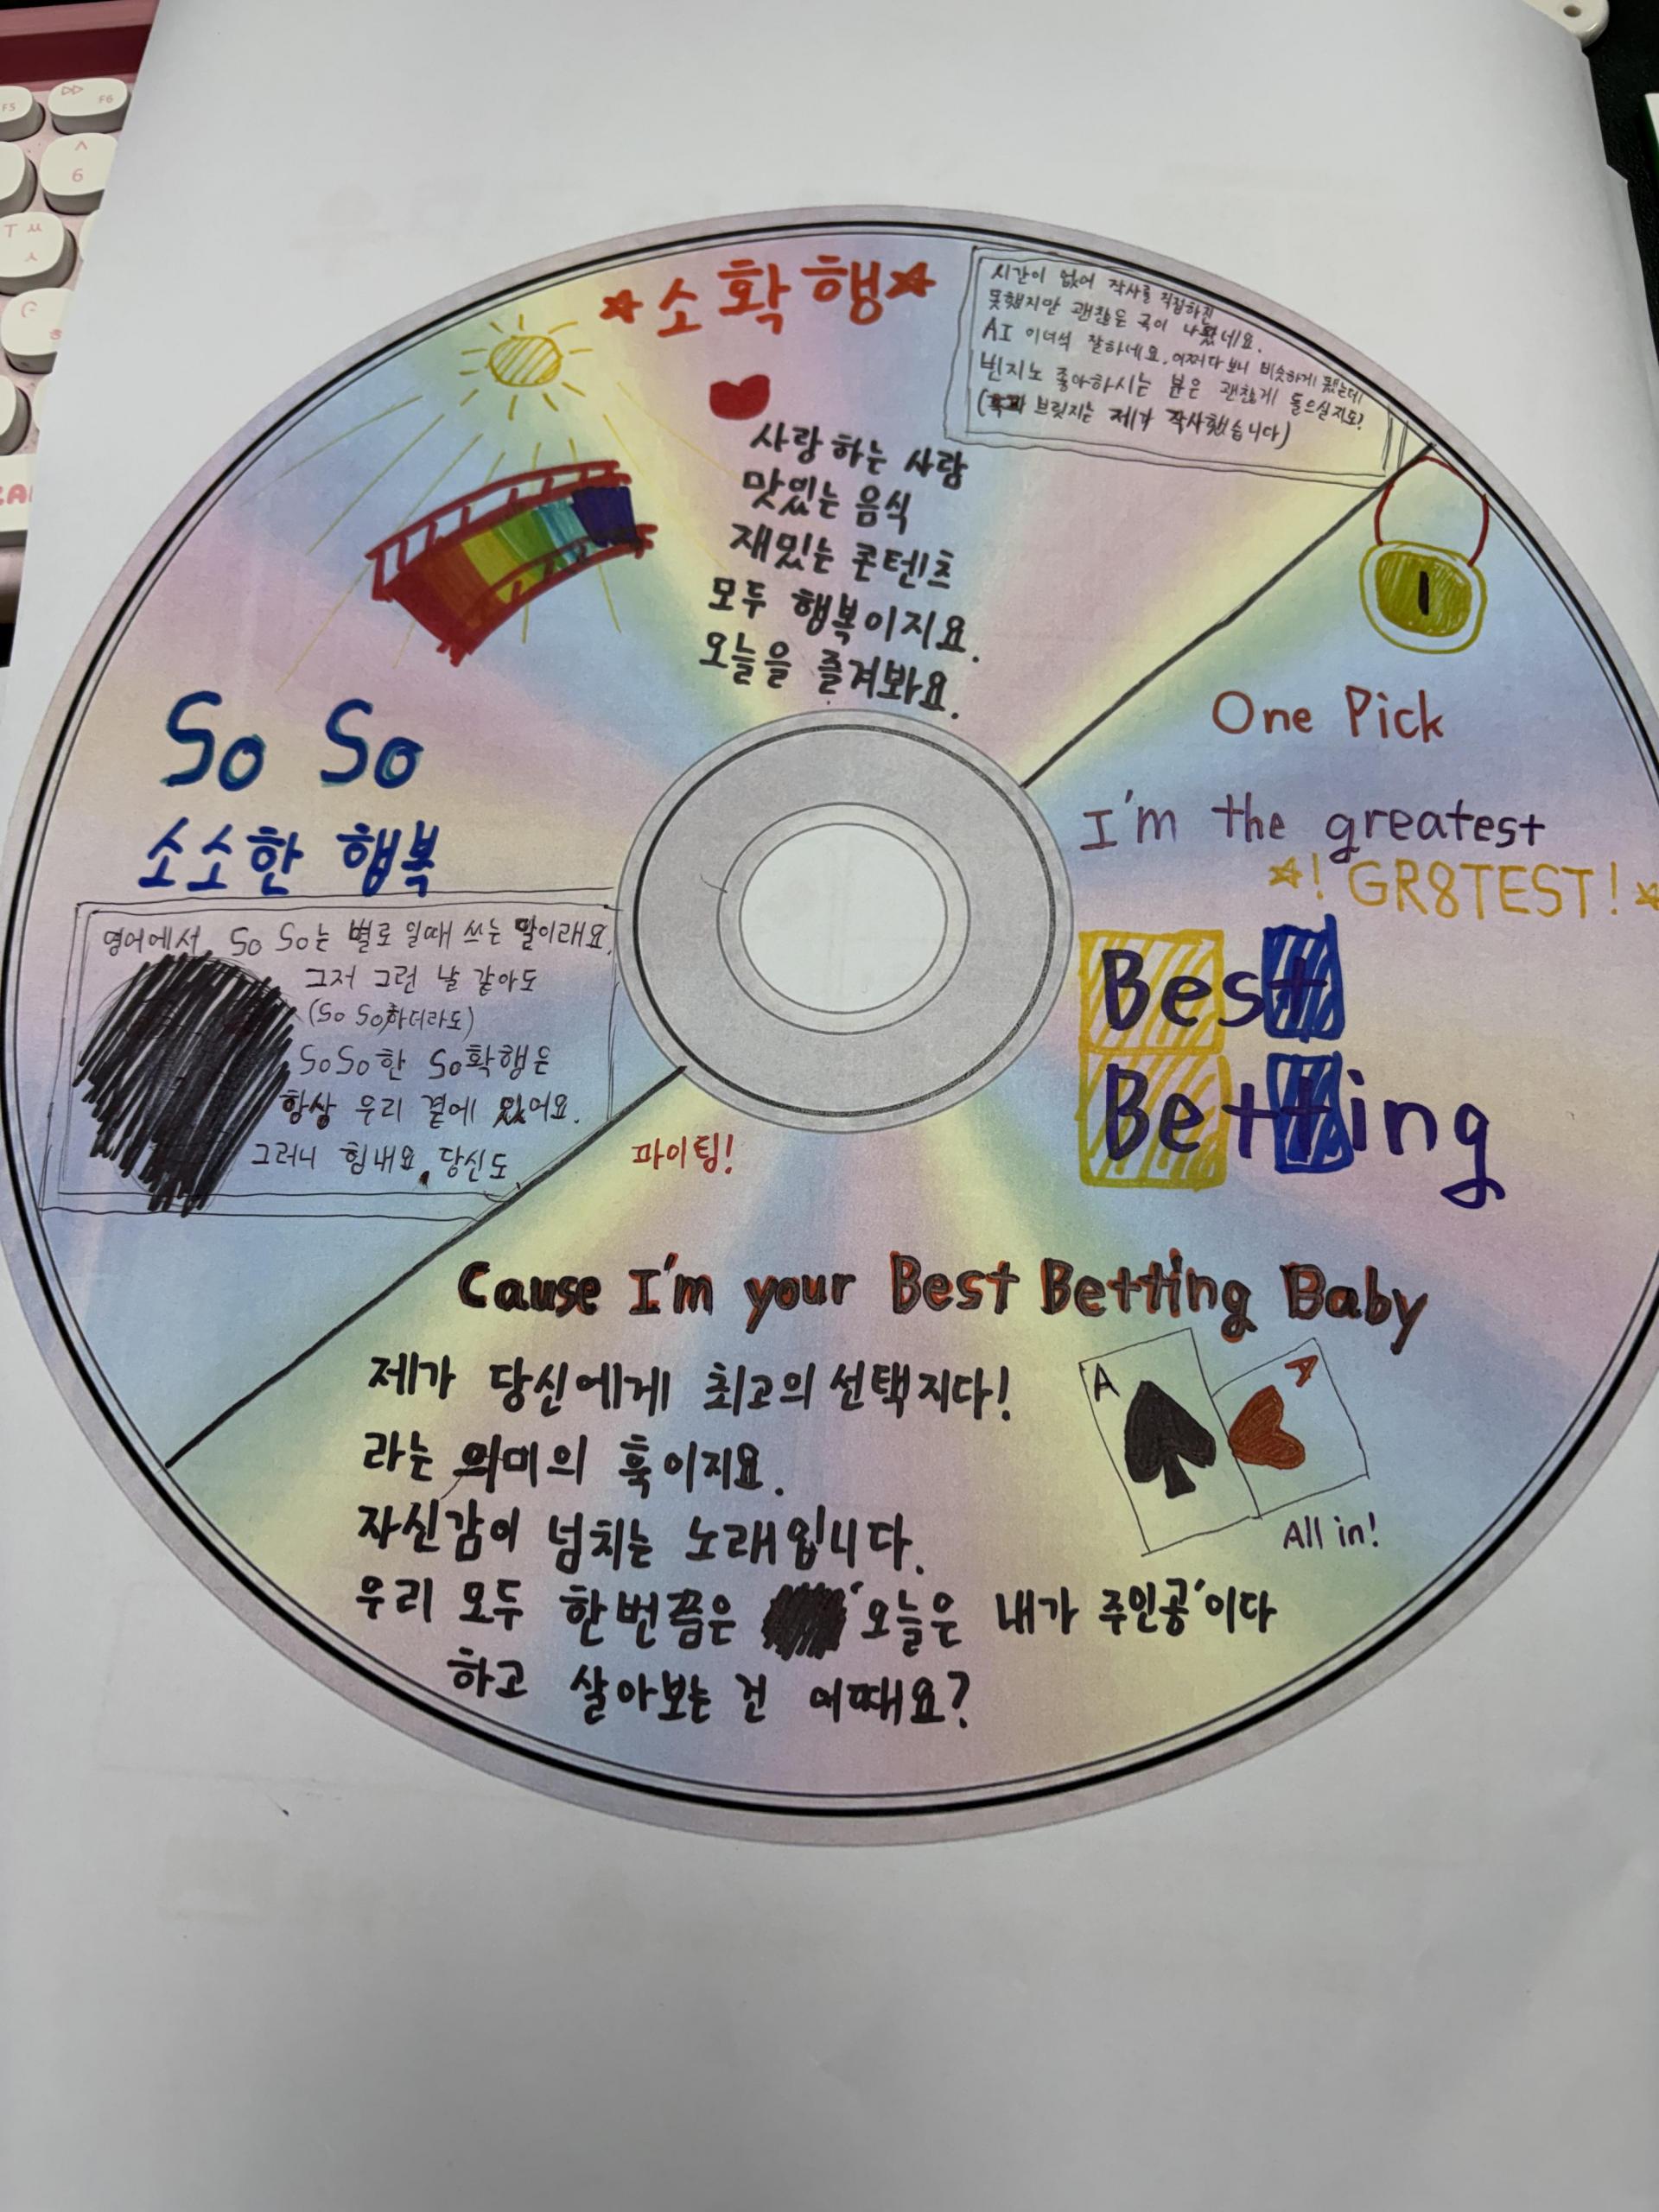 ☆소확행☆
시간이 없어 작사를 직접하진
못했지만 괜찮은 곡이 나왔네요.
AI 이녀석 잘하네요. 어쩌다 보니 비슷하게 됐는데
빈지노 좋아하시는 분은 괜찮게 들으실지도?
( 브릿지는 제가 작사했습니다)
사랑하는 사람
맛있는 음식
재밌는 콘텐츠
모두 행복이지요.
오늘을 즐겨봐요.
So So
소소한 행복
영어에서 So So는 별로 일때 쓰는 말이래요.
그저 그런 날 같아도
(So So하더라도)
SoSo한 So확행은
항상 우리 곁에 있어요.
그러니 힘내요. 당신도.
파이팅!
1
One Pick
I'm the greatest
☆! GR8TEST! ☆
Best
Betting
Cause I'm your Best Betting Baby
제가 당신에게 최고의 선택지다!
라는 의미의 훅이지요.
자신감이 넘치는 노래입니다.
우리 모두 한번쯤은 '오늘은 내가 주인공'이다
하고 살아보는 건 어때요?
A
A
All in!
F5
F6
^
6
T ㅆ
ㅅ
G
ㅎ